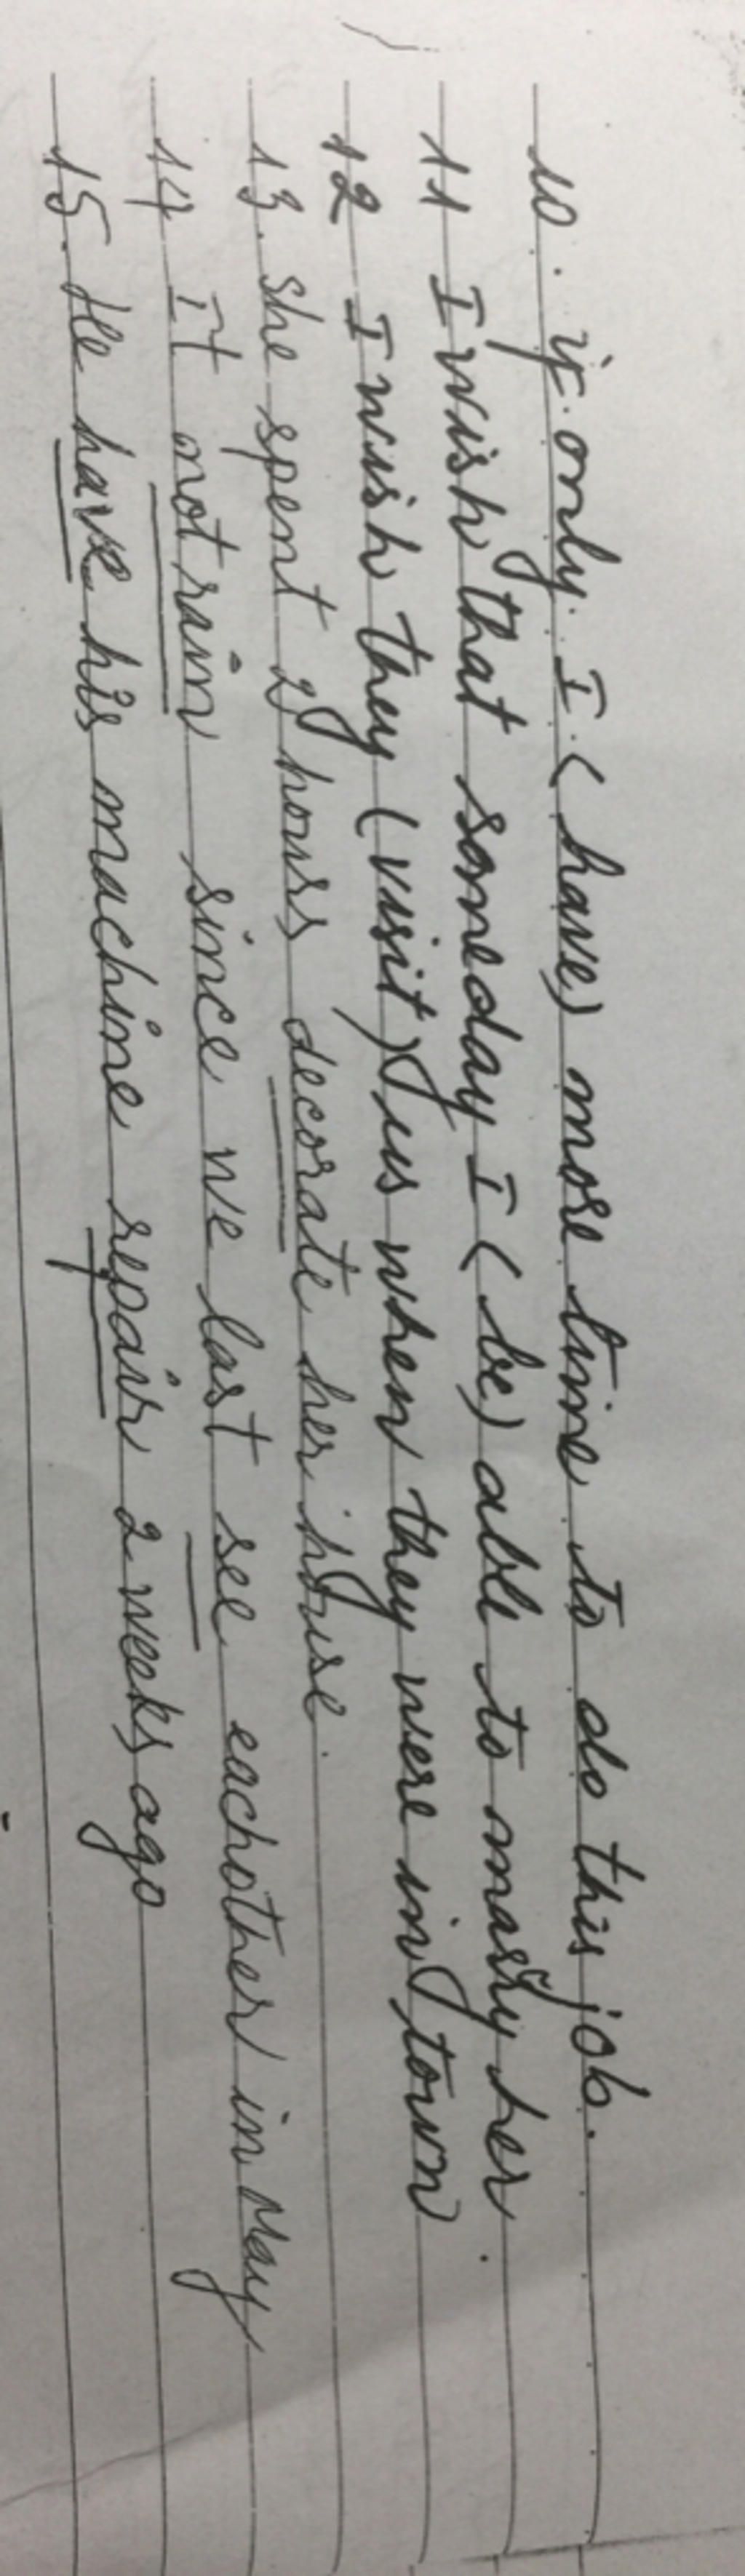 10. if only I (have) more time to do this job.
11 I wish that someday I (be) able to marry her.
12 I wish they (visit) us when they were in town
13. she spent 2 hours decorate her house.
14 It not rain since we last see eachother in May
15. He have his machine repair 2 weeks ago